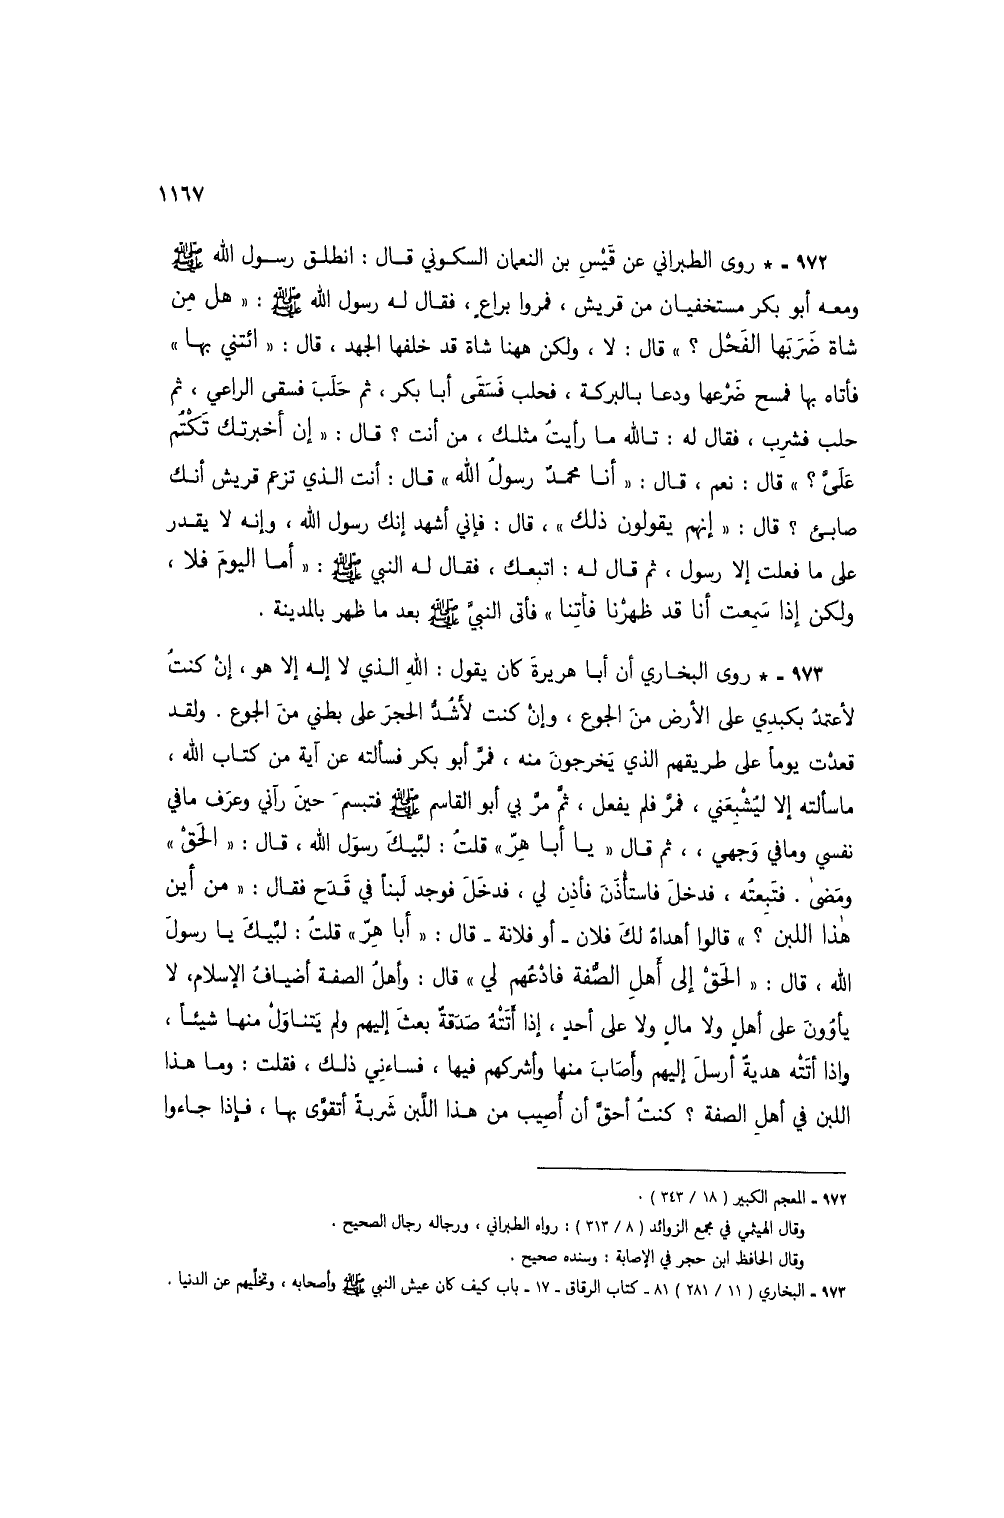 ١١٦٧
٩٧٢ ـ * روى الطبراني عن قَيْسِ بن النعمان السكوني قال : انطلق رسول الله ﷺ
ومعه أبو بكر مستخفيان من قريش ، فمروا براعٍ ، فقال له رسول الله ﷺ : « هل مِن
شاة ضَرَبَها الفَحْل ؟ » قال : لا ، ولكن ههنا شاة قد خلفها الجهد ، قال : « ائتني بها »
فأتاه بها فمسح ضَرْعها ودعا بالبركة ، فحلب فَسَقَى أبا بكر ، ثم حَلَبَ فسقى الراعي ، ثم
حلب فشرِب ، فقال له : تالله ما رأيتُ مثلك ، من أنت ؟ قال : « إن أخبرتك تَكْتُم
عَلَيَّ ؟ » قال : نعم ، قال : « أنا محمدٌ رسولُ الله » قال : أنت الذي تزعم قريش أنك
صابئ ؟ قال : « إنهم يقولون ذلك » ، قال : فإني أشهد إنك رسول الله ، وإنه لا يقدر
على ما فعلت إلا رسول ، ثم قال له : اتبعك ، فقال له النبي ﷺ : « أما اليومَ فلا ،
ولكن إذا سَمِعت أنا قد ظهرْنا فأتِنا » فأتى النبيَّ ﷺ بعد ما ظهر بالمدينة .
٩٧٣ ـ * روى البخاري أن أبا هريرةَ كان يقول : اللهِ الذي لا إله إلا هو ، إنْ كنتُ
لأعتمدُ بكبدِي على الأرض منَ الجوع ، وإنْ كنت لأَشُدُّ الحجرَ على بطني منَ الجوع . ولقد
قعدْت يوماً على طريقهم الذي يَخرجونَ منه ، فمرَّ أبو بكر فسألته عن آية من كتاب الله ،
ماسألته إلا ليُشْبِعَني ، فمرَّ فلم يفعل ، ثمَّ مرَّ بي أبو القاسم ﷺ فتبسم َ حينَ رآني وعرَف مافي
نفسي ومافي وَجهي ، ، ثم قال « يا أبا هِرّ » قلتُ : لبَّيكَ رسوَل الله ، قال : « الحَقْ »
ومَضىٰ . فتَبِعتُه ، فدخلَ فاستأْذَنَ فأذِن لي ، فدخَلَ فوجد لَبناً في قَدَح فقال : « من أين
هٰذا اللبن ؟ » قالوا أهداهُ لكَ فلان ـ أو فلانة ـ قال : « أبا هِرّ » قلتُ : لبَّيكَ يا رسولَ
الله ، قال : « الحَقْ إلى أَهلِ الصُّفة فادْعُهم لي » قال : وأهلُ الصفة أضيافُ الإسلام، لا
يأوُونَ على أهلٍ ولا مالٍ ولا على أحدٍ ، إذا أَتَتْهُ صَدَقةٌ بعثَ إليهم ولم يَتناوَلْ منها شيئاً ،
وإذا أتَتْه هديةٌ أرسلَ إليهم وأَصَابَ منها وأشركهم فيها ، فساءني ذلك ، فقلت : وما هذا
اللبن في أهلِ الصفة ؟ كنتُ أحقَّ أن أُصِيب من هذا اللَّبن شَربةً أتقوَّى بها ، فإذا جاءوا
٩٧٢ ـ المعجم الكبير ( ١٨ / ٣٤٣ ) .
وقال الهيثمي في مجمع الزوائد ( ٨ / ٣١٣ ) : رواه الطبراني ، ورجاله رجال الصحيح .
وقال الحافظ ابن حجر في الإصابة : وسنده صحيح .
٩٧٣ ـ البخاري ( ١١ / ٢٨١ ) ٨١ ـ كتاب الرقاق ـ ١٧ ـ باب كيف كان عيش النبي ﷺ وأصحابه ، وتخلّيهم عن الدنيا .